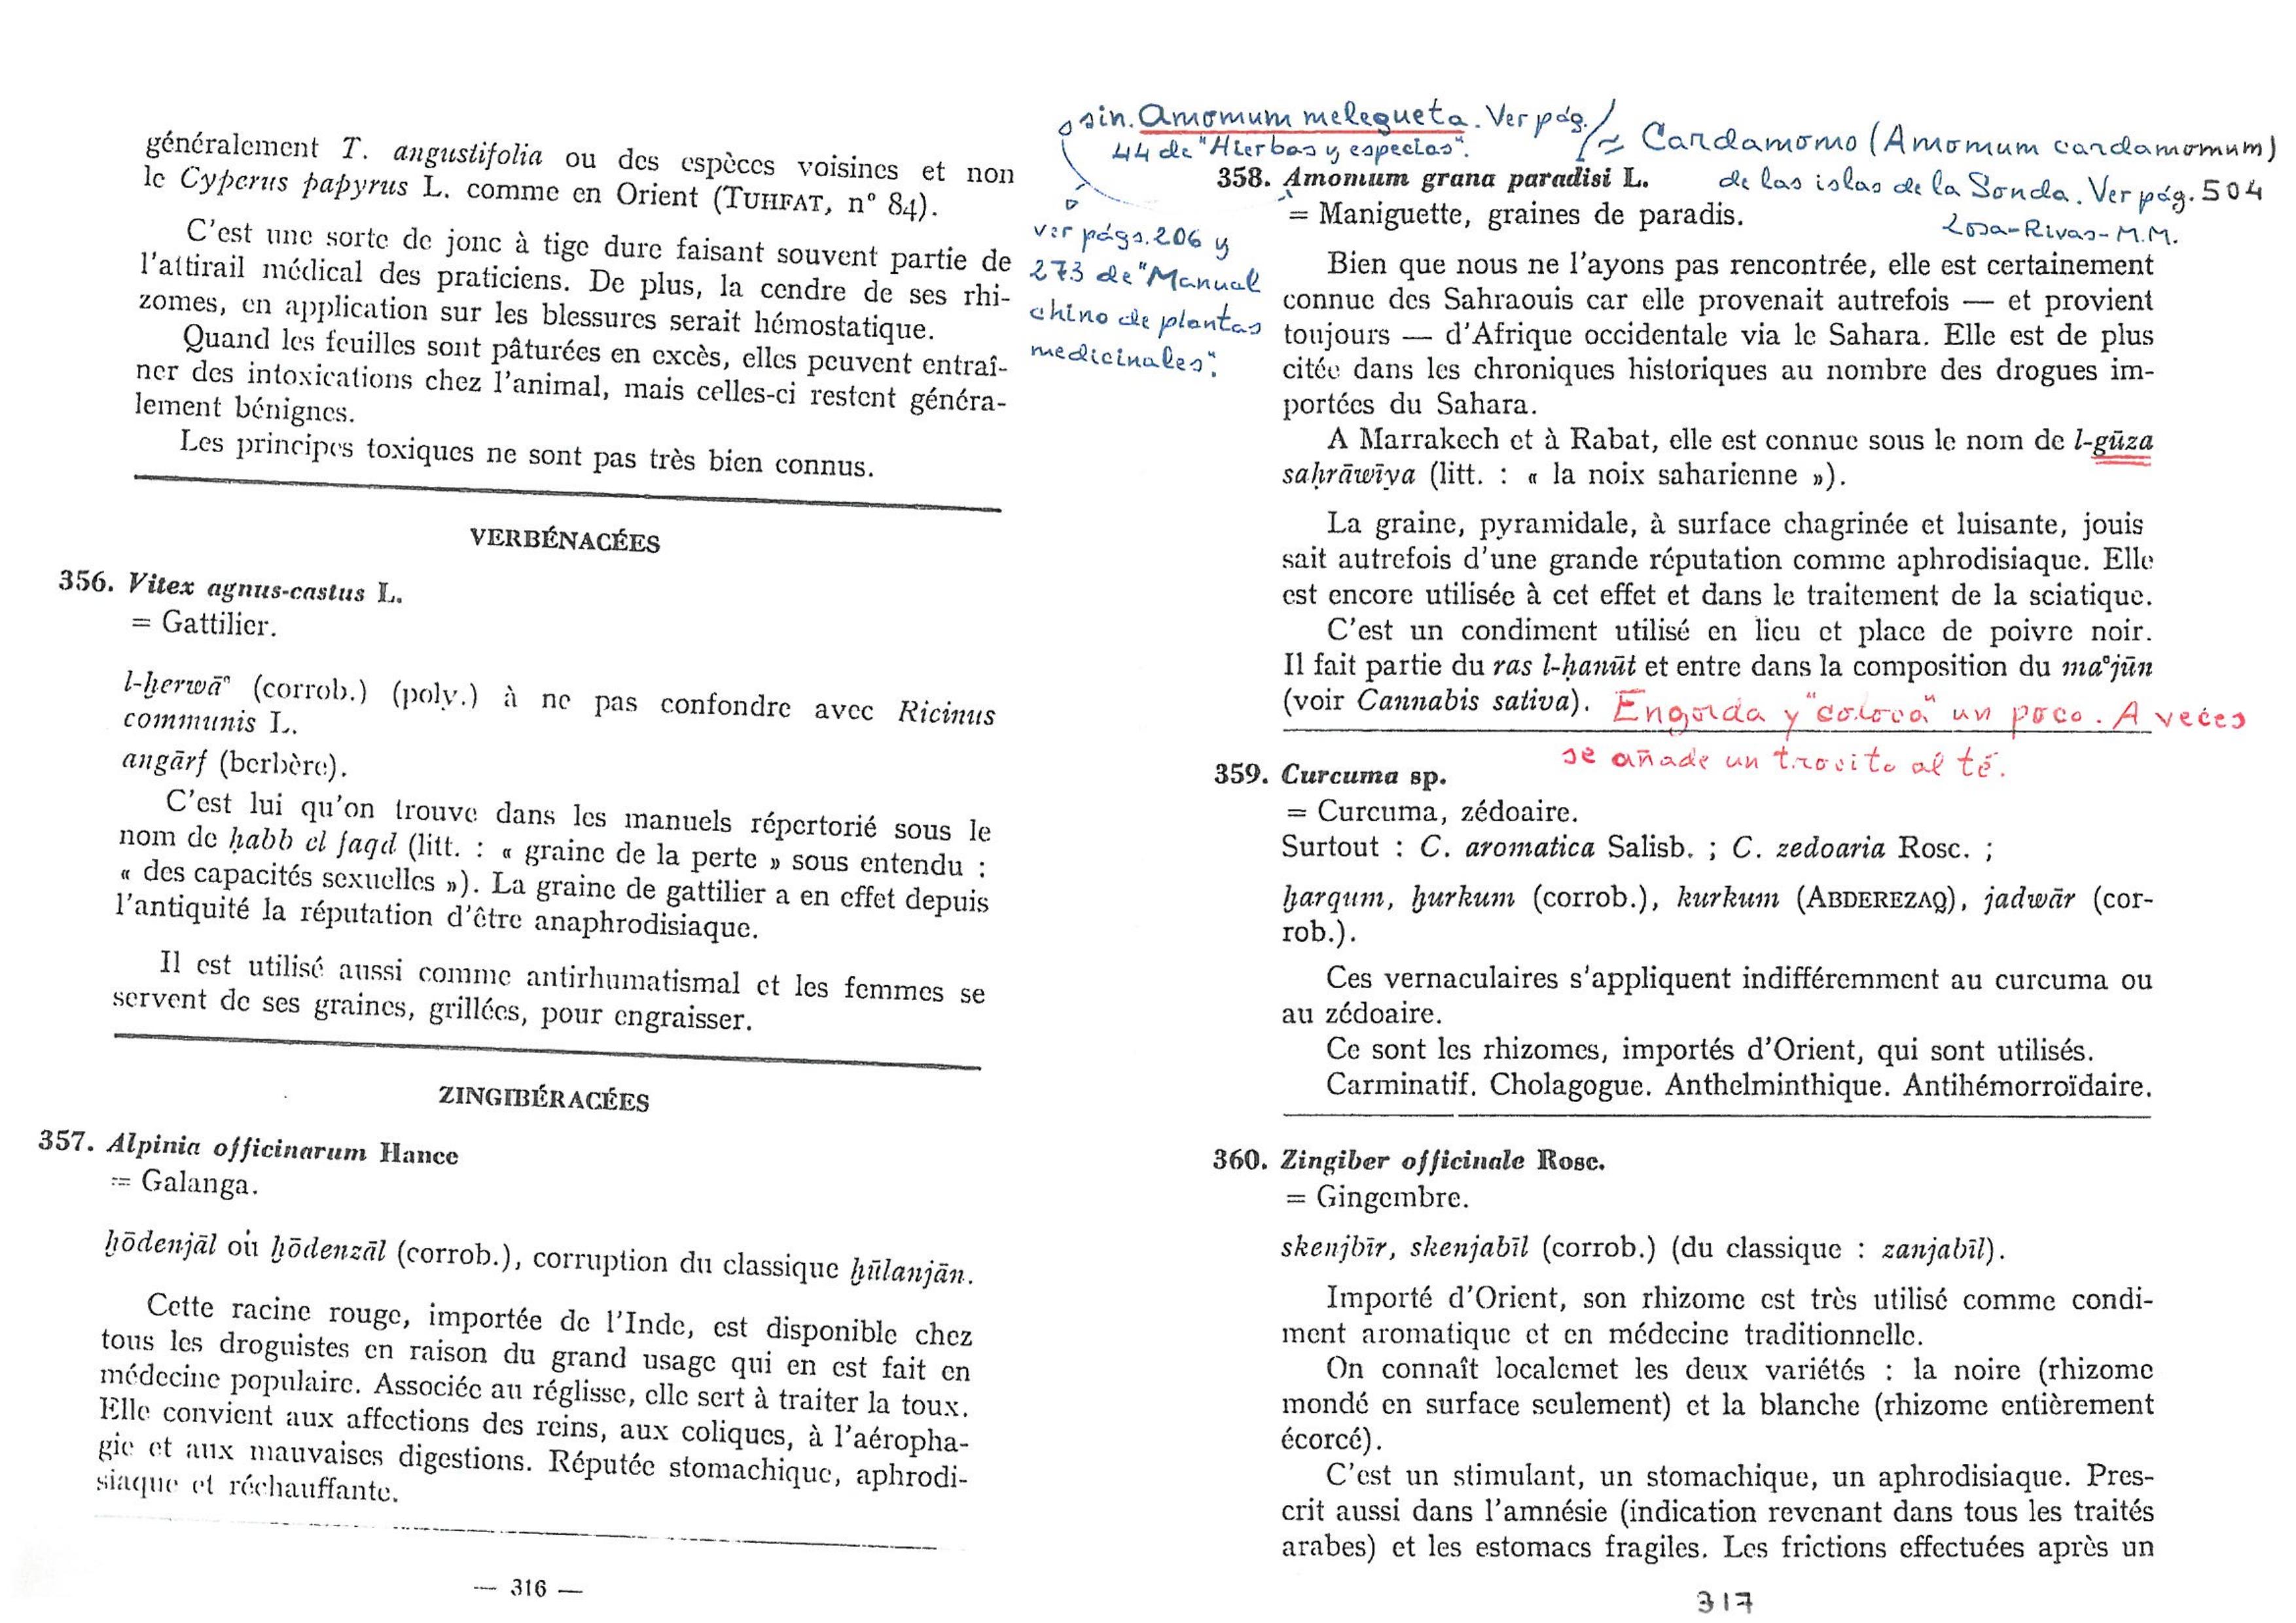 généralement T. angustifolia ou des espèces voisines et non
le Cyperus papyrus L. comme en Orient (TUHFAT, n° 84).
C'est une sorte de jonc à tige dure faisant souvent partie de
l'attirail médical des praticiens. De plus, la cendre de ses rhi-
zomes, en application sur les blessures serait hémostatique.
Quand les feuilles sont pâturées en excès, elles peuvent entraî-
ner des intoxications chez l'animal, mais celles-ci restent généra-
lement bénignes.
Les principes toxiques ne sont pas très bien connus.
VERBÉNACÉES
356. Vitex agnus-castus L.
= Gattilier.
l-ḫerwāⁿ (corrob.) (poly.) à ne pas confondre avec Ricinus
communis L.
angārf (berbère).
C'est lui qu'on trouve dans les manuels répertorié sous le
nom de ḥabb el faqd (litt. : « graine de la perte » sous entendu :
« des capacités sexuelles »). La graine de gattilier a en effet depuis
l'antiquité la réputation d'être anaphrodisiaque.
Il est utilisé aussi comme antirhumatismal et les femmes se
servent de ses graines, grillées, pour engraisser.
ZINGIBÉRACÉES
357. Alpinia officinarum Hance
= Galanga.
ḫōdenjāl ou ḫōdenzāl (corrob.), corruption du classique ḫūlanjān.
Cette racine rouge, importée de l'Inde, est disponible chez
tous les droguistes en raison du grand usage qui en est fait en
médecine populaire. Associée au réglisse, elle sert à traiter la toux.
Elle convient aux affections des reins, aux coliques, à l'aéropha-
gie et aux mauvaises digestions. Réputée stomachique, aphrodi-
siaque et réchauffante.
— 316 —
sin. Amomum melegueta. Ver pág.
44 de "Hierbas y especias".
≈ Cardamomo (Amomum cardamomum)
de las islas de la Sonda. Ver pág. 504
Losa-Rivas-M.M.
ver págs. 206 y
273 de "Manual
chino de plantas
medicinales".
358. Amomum grana paradisi L.
= Maniguette, graines de paradis.
Bien que nous ne l'ayons pas rencontrée, elle est certainement
connue des Sahraouis car elle provenait autrefois — et provient
toujours — d'Afrique occidentale via le Sahara. Elle est de plus
citée dans les chroniques historiques au nombre des drogues im-
portées du Sahara.
A Marrakech et à Rabat, elle est connue sous le nom de l-gūza
saḥrāwīya (litt. : « la noix saharienne »).
La graine, pyramidale, à surface chagrinée et luisante, jouis
sait autrefois d'une grande réputation comme aphrodisiaque. Elle
est encore utilisée à cet effet et dans le traitement de la sciatique.
C'est un condiment utilisé en lieu et place de poivre noir.
Il fait partie du ras l-ḥanūt et entre dans la composition du maᶜjūn
(voir Cannabis sativa). Engorda y "coloca" un poco. A veces
se añade un trocito al té.
359. Curcuma sp.
= Curcuma, zédoaire.
Surtout : C. aromatica Salisb. ; C. zedoaria Rosc. ;
ḫarqum, ḫurkum (corrob.), kurkum (ABDEREZAQ), jadwār (cor-
rob.).
Ces vernaculaires s'appliquent indifféremment au curcuma ou
au zédoaire.
Ce sont les rhizomes, importés d'Orient, qui sont utilisés.
Carminatif. Cholagogue. Anthelminthique. Antihémorroïdaire.
360. Zingiber officinale Rosc.
= Gingembre.
skenjbīr, skenjabīl (corrob.) (du classique : zanjabīl).
Importé d'Orient, son rhizome est très utilisé comme condi-
ment aromatique et en médecine traditionnelle.
On connaît localemet les deux variétés : la noire (rhizome
mondé en surface seulement) et la blanche (rhizome entièrement
écorcé).
C'est un stimulant, un stomachique, un aphrodisiaque. Pres-
crit aussi dans l'amnésie (indication revenant dans tous les traités
arabes) et les estomacs fragiles. Les frictions effectuées après un
317